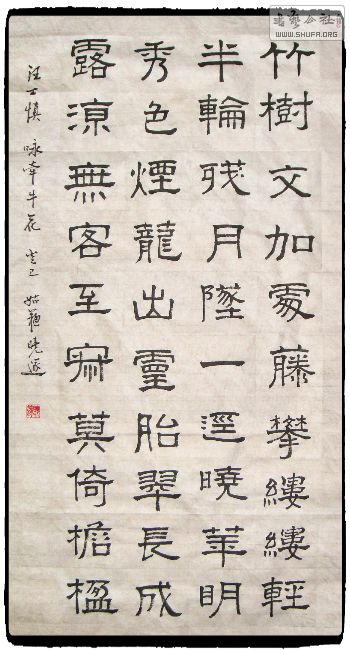 竹樹交加處藤攀縷縷輕
半輪殘月墜一逕曉華明
秀色煙龍出靈胎翠長成
露涼無客至寂莫倚檐楹
汪士慎 咏牽牛花 癸巳 姑蘇曉
書藝公社
WWW.SHUFA.ORG